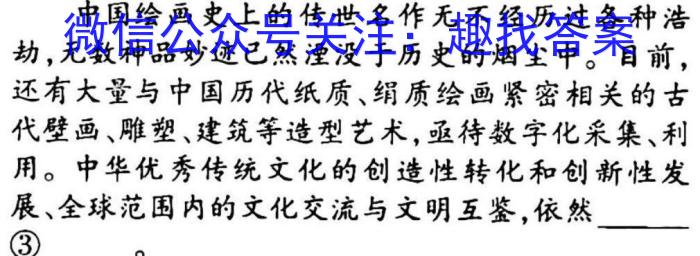 中国绘画史上的传世名作无不经历过各种浩
微信公众号关注：趣找答案
劫，无数神品妙迹已然湮没于历史的烟尘中。目前，
还有大量与中国历代纸质、绢质绘画紧密相关的古
代壁画、雕塑、建筑等造型艺术，亟待数字化采集、利
用。中华优秀传统文化的创造性转化和创新性发
展、全球范围内的文化交流与文明互鉴，依然______
③______。